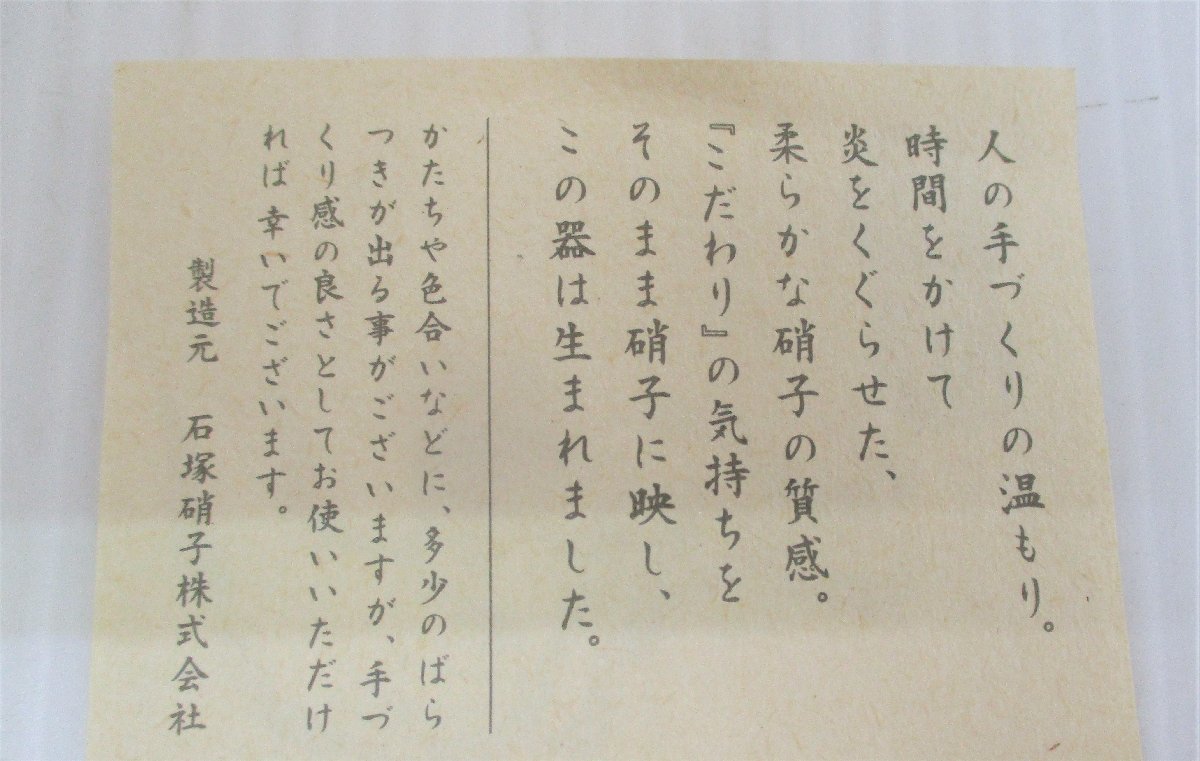 人の手づくりの温もり。
時間をかけて
炎をくぐらせた、
柔らかな硝子の質感。
『こだわり』の気持ちを
そのまま硝子に映し、
この器は生まれました。
かたちや色合いなどに、多少のばら
つきが出る事がございますが、手づ
くり感の良さとしてお使いいただけ
れば幸いでございます。
製造元 石塚硝子株式会社